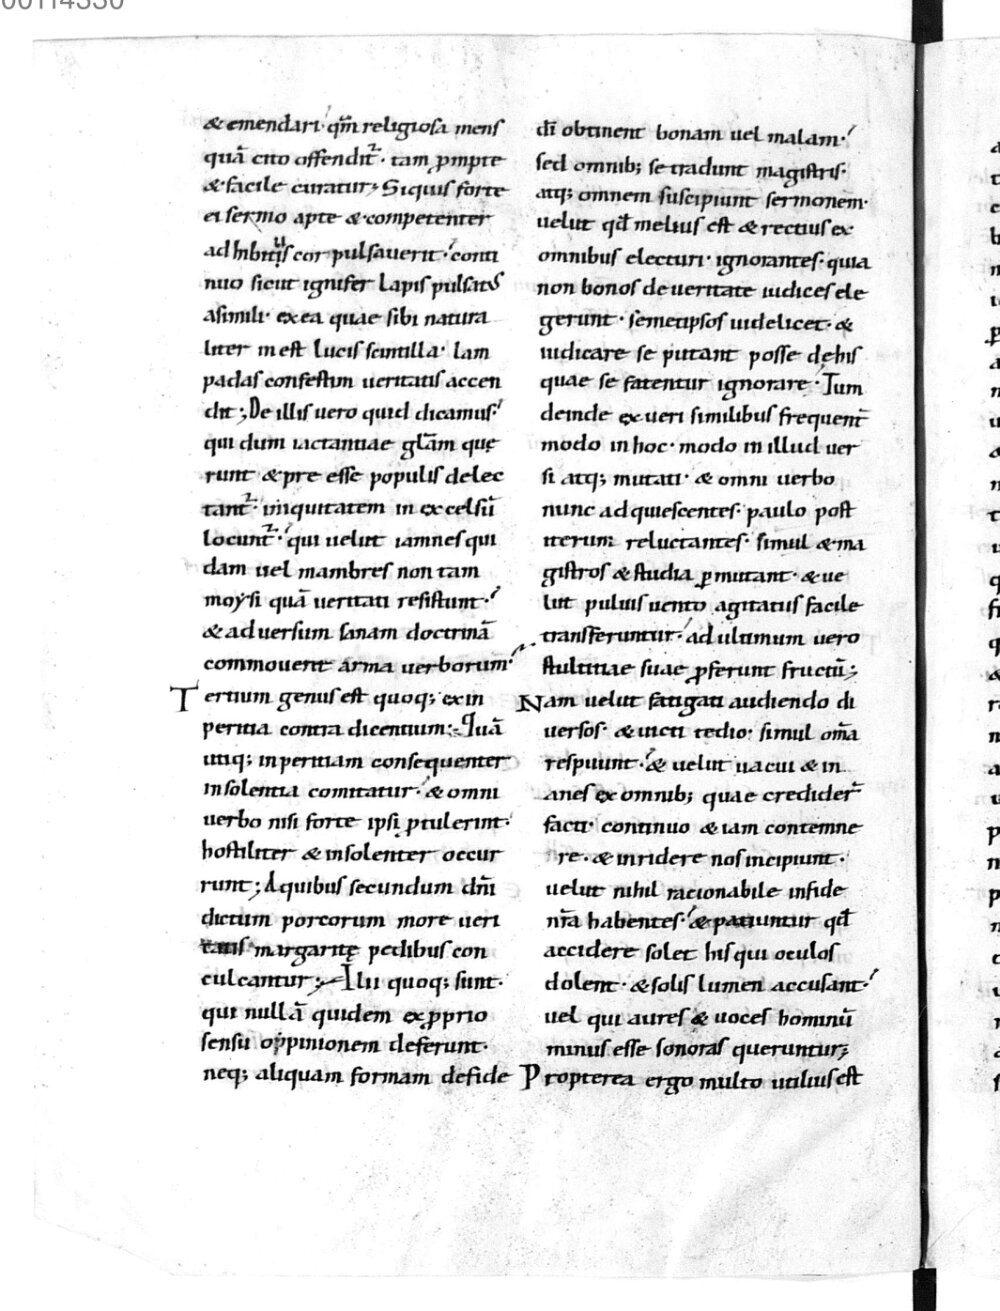 00114330
& emendari· qm̄ religiosa mens
quā cito offendit᷑· tam ꝓmpte
& facile curatur; Siquis forte
ei sermo apte & competenter
adhibitus cor pulsaverit· conti
nuo sicut ignifer lapis pulsatus
asimili· ex ea quae sibi natura
liter inest lucis scintilla· lam
padas confestim ueritatis accen
dit; De illis uero quid dicamus·
qui dum iactantiae glām quę
runt & pre esse populis delec
tant᷑· iniquitatem in excelsū
locunt᷑· qui uelut iamnes qui
dam uel mambres non tam
moẏsi quā ueritati resistunt·
& aduersum sanam doctrinā
commouent arma uerborum·
Tertium genus est quoq; ex in
peritia contra dicentium; Quā
utiq; inperitiam consequenter
insolentia comitatur· & omni
uerbo nisi forte ipsi ꝓtulerint·
hostiliter & insolenter occur
runt; A quibus secundum dn̄i
dictum porcorum more ueri
tatis margaritę pedibus con
culcantur; Illi quoq; sunt·
qui nullā quidem ex ꝓprio
sensu oppinionem deferunt·
neq; aliquam formam defide
dī obtinent bonam uel malam·
sed omnib; se tradunt magistris·
atq; omnem suscipiunt sermonem·
uelut qđ melius est & rectius ex
omnibus electuri· ignorantes· quia
non bonos de ueritate iudices ele
gerunt· semetipsos uidelicet· &
iudicare se putant posse de his
quae se fatentur ignorare· Tum
deinde ex ueri similibus frequent᷑
modo in hoc· modo in illud uer
si atq; mutati· & omni uerbo
nunc adquiescentes· paulo post
iterum reluctantes· simul & ma
gistros & studia ꝑmutant· & ue
lut puluis uento agitatus facile
transferuntur· ad ultimum uero
stultitiae suae ꝓferunt fructū;
Nam uelut fatigati audiendo di
uersos· & uicti tedio· simul om̄a
respuunt· & uelut uacui & in
anes ex omnib; quae credider᷑
facti· continuo & iam contemne
re· & inridere nos incipiunt·
uelut nihil racionabile infide
nr̄a habentes· & patiuntur qđ
accidere solet his qui oculos
dolent· & solis lumen accusant·
uel qui aures & uoces hominū
minus esse sonoras queruntur;
Propterea ergo multo utilius est